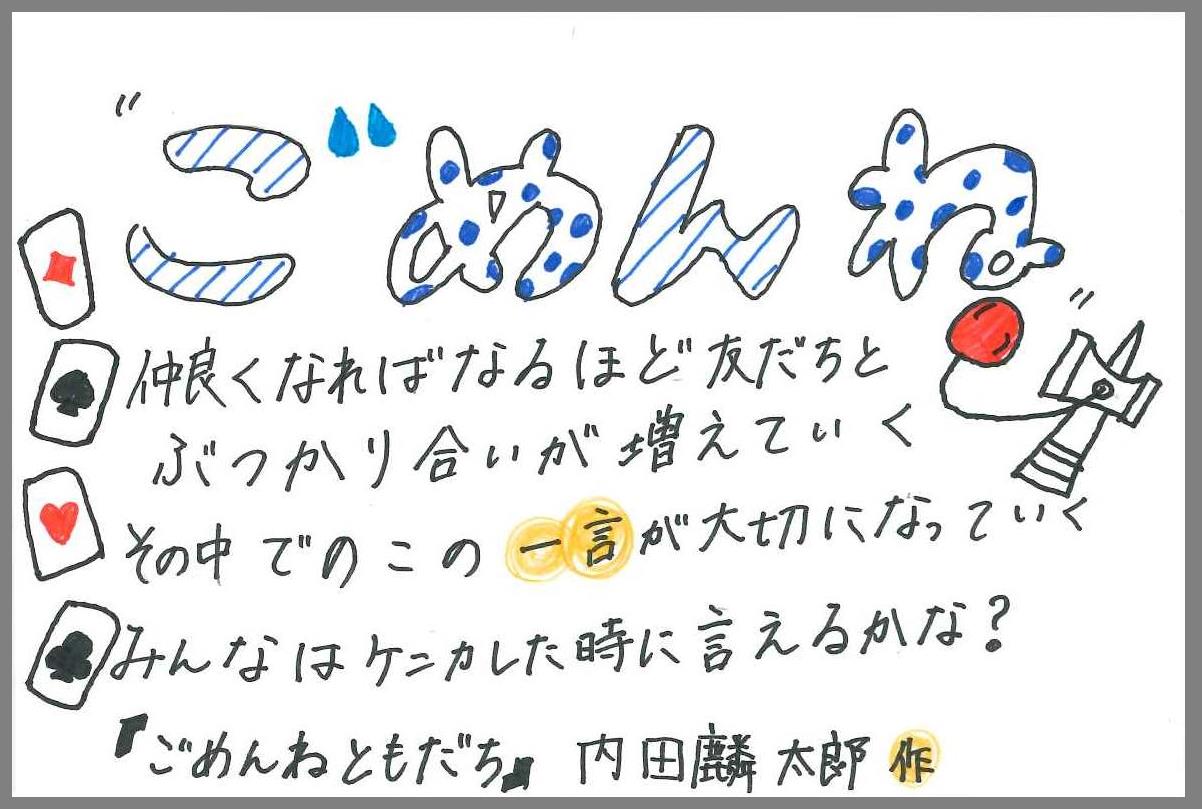 "ごめんね"
仲良くなればなるほど友だちと
ぶつかり合いが増えていく
その中でのこの一言が大切になっていく
みんなはケンカした時に言えるかな?
『ごめんねともだち』 内田麟太郎 作